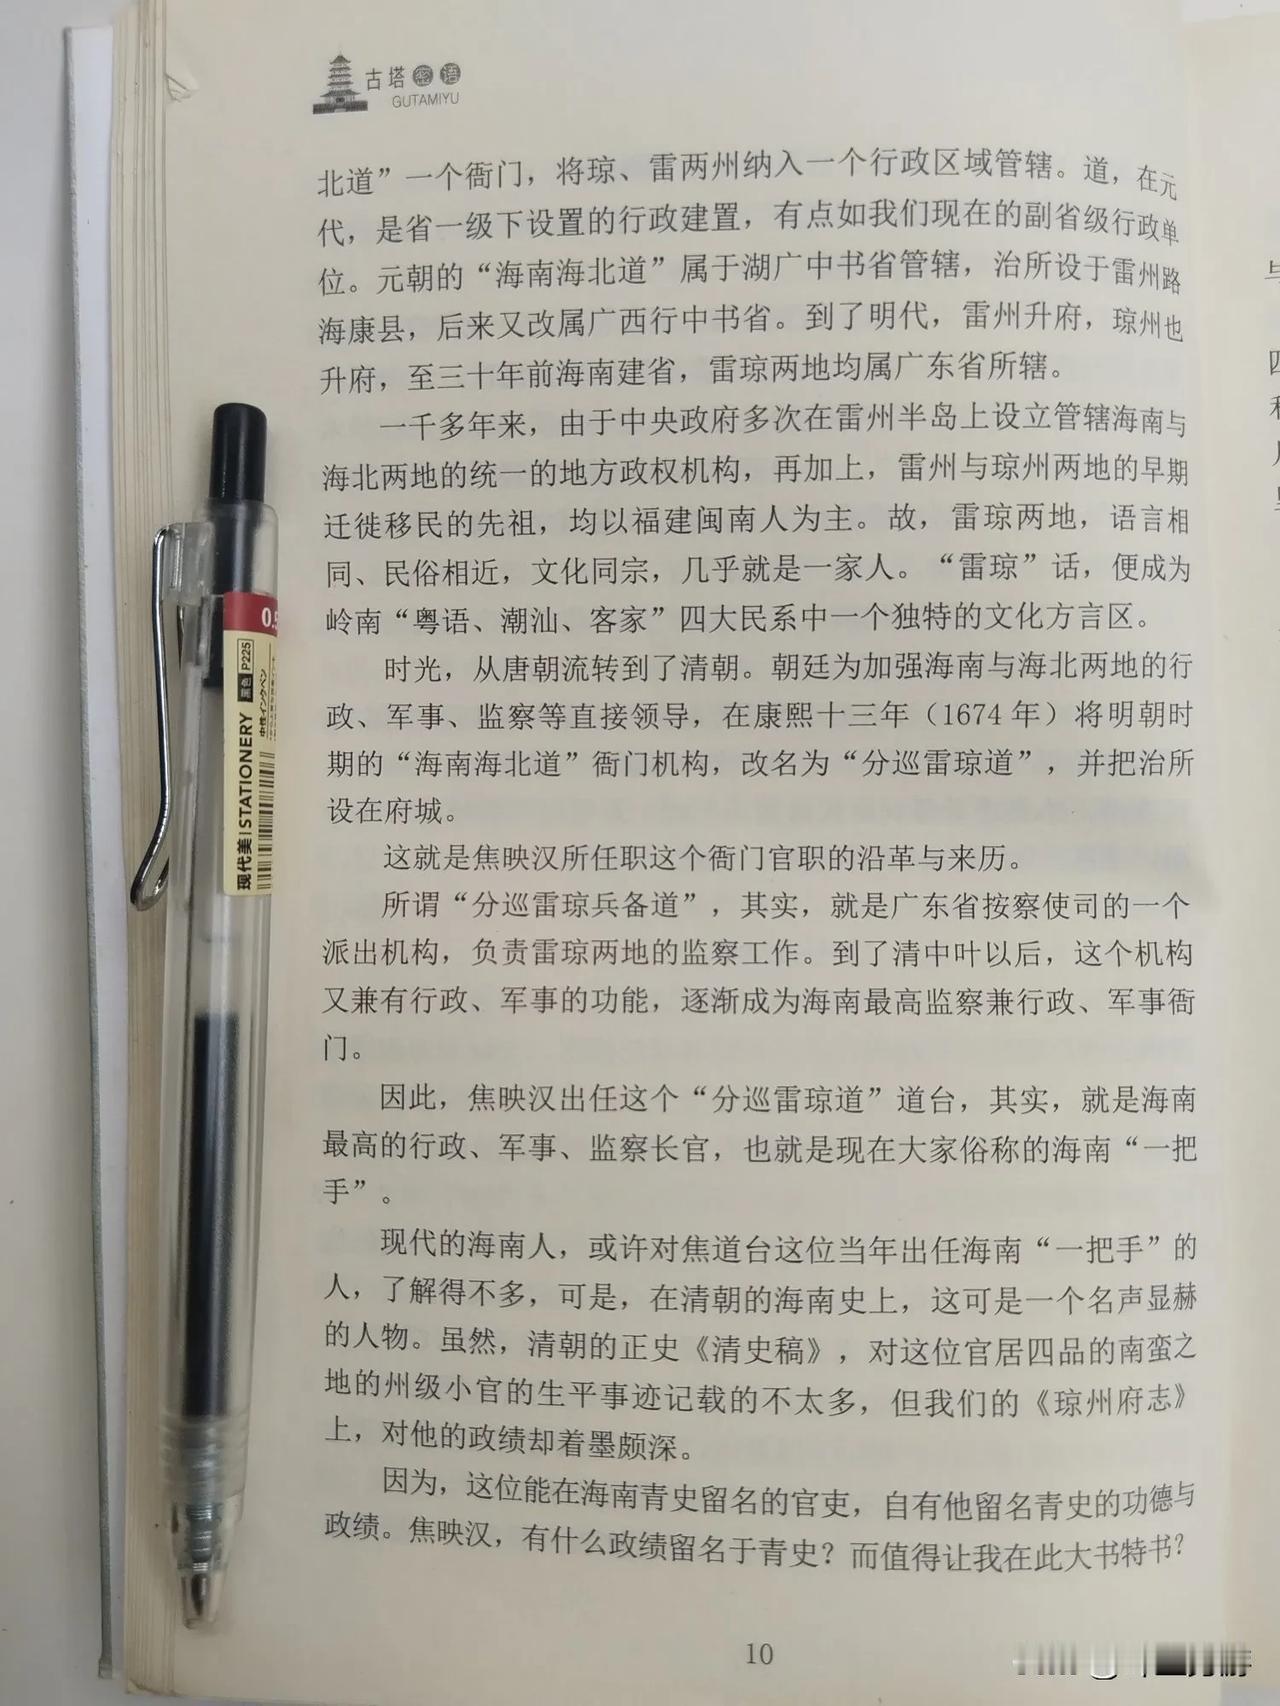 古塔密语
GUTAMIYU
北道”一个衙门，将琼、雷两州纳入一个行政区域管辖。道，在元
代，是省一级下设置的行政建置，有点如我们现在的副省级行政单
位。元朝的“海南海北道”属于湖广中书省管辖，治所设于雷州路
海康县，后来又改属广西行中书省。到了明代，雷州升府，琼州也
升府，至三十年前海南建省，雷琼两地均属广东省所辖。
一千多年来，由于中央政府多次在雷州半岛上设立管辖海南与
海北两地的统一的地方政权机构，再加上，雷州与琼州两地的早期
迁徙移民的先祖，均以福建闽南人为主。故，雷琼两地，语言相
同、民俗相近，文化同宗，几乎就是一家人。“雷琼”话，便成为
岭南“粤语、潮汕、客家”四大民系中一个独特的文化方言区。
时光，从唐朝流转到了清朝。朝廷为加强海南与海北两地的行
政、军事、监察等直接领导，在康熙十三年（1674 年）将明朝时
期的“海南海北道”衙门机构，改名为“分巡雷琼道”，并把治所
设在府城。
这就是焦映汉所任职这个衙门官职的沿革与来历。
所谓“分巡雷琼兵备道”，其实，就是广东省按察使司的一个
派出机构，负责雷琼两地的监察工作。到了清中叶以后，这个机构
又兼有行政、军事的功能，逐渐成为海南最高监察兼行政、军事衙
门。
因此，焦映汉出任这个“分巡雷琼道”道台，其实，就是海南
最高的行政、军事、监察长官，也就是现在大家俗称的海南“一把
手”。
现代的海南人，或许对焦道台这位当年出任海南“一把手”的
人，了解得不多，可是，在清朝的海南史上，这可是一个名声显赫
的人物。虽然，清朝的正史《清史稿》，对这位官居四品的南蛮之
地的州级小官的生平事迹记载的不太多，但我们的《琼州府志》
上，对他的政绩却着墨颇深。
因为，这位能在海南青史留名的官吏，自有他留名青史的功德与
政绩。焦映汉，有什么政绩留名于青史？而值得让我在此大书特书？
10
0.5
黑色 P225
中性インクペン
现代美 | STATIONERY